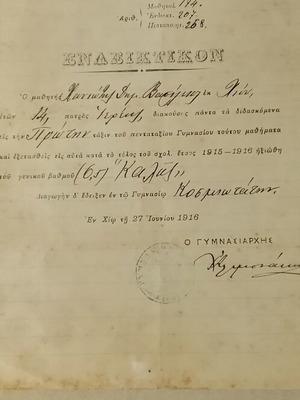 Μαθητολ. 114.
Ἀριθ. Ἐνδεικτ. 207
Πιστοποιητ. 268.
ΕΝΔΕΙΚΤΙΚΟΝ
Ὁ μαθητὴς
ἐτῶν 12, πατρὸς διακούσας πάντα τὰ διδασκόμενα
εἰς τὴν Πρώτην τάξιν τοῦ πενταταξίου Γυμνασίου τούτου μαθήματα
καὶ ἐξετασθεὶς εἰς αὐτὰ κατὰ τὸ τέλος τοῦ σχολ. ἔτους 1915—1916 ἠξιώθη
τοῦ γενικοῦ βαθμοῦ Καλῶς
Διαγωγὴν δ' ἔδειξεν ἐν τῷ Γυμνασίῳ Κοσμιωτάτην.
Ἐν Χίῳ τῇ 27 Ἰουνίου 1916
Ο ΓΥΜΝΑΣΙΑΡΧΗΣ